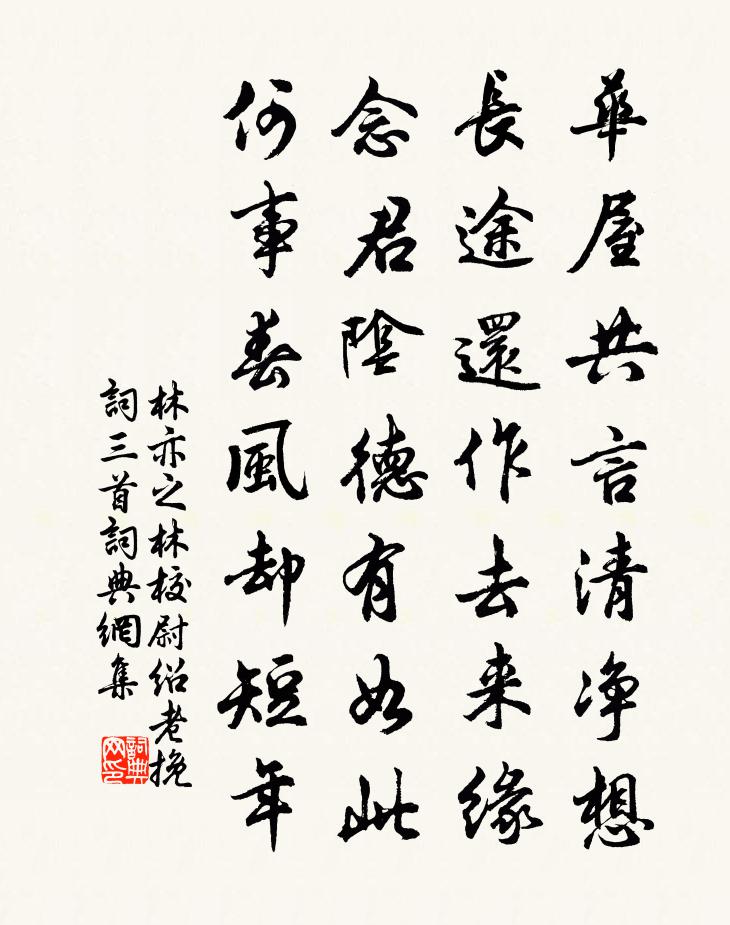 華屋共言清淨想
長途還作去来緣
念君陰德有如此
何事春風却短年
林亦之林校尉紹老挽
詞三首詞典網集
詞典
网印